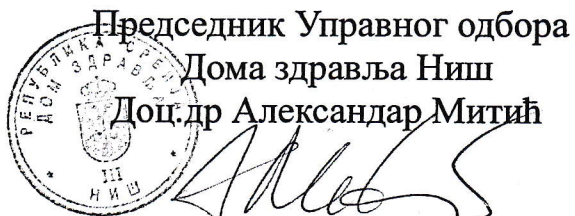 Председник Управног одбора
Дома здравља Ниш
Доц.др Александар Митић
РЕПУБЛИКА СРБИЈА
ДОМ ЗДРАВЉА
III
НИШ